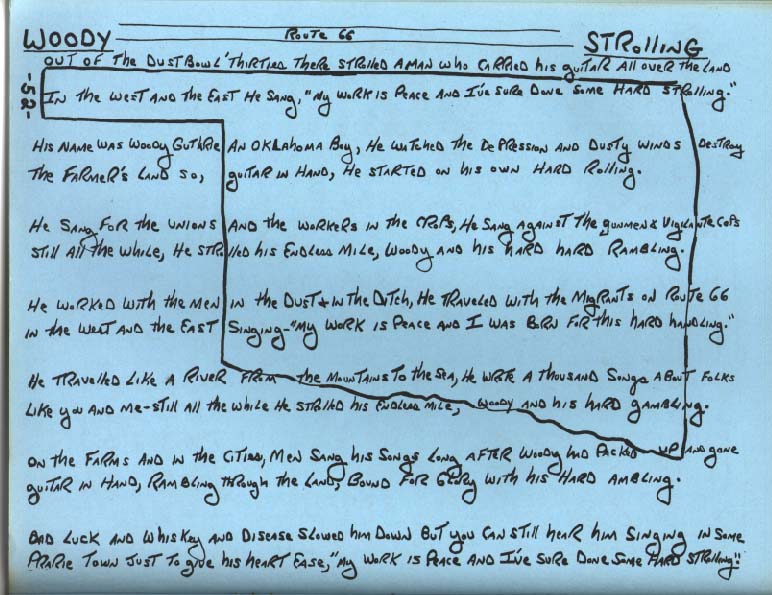 WOODY
Route 66
STRolliNG
-52-
Out of the Dust Bowl 'Thirties There strolled A man who carried his guitar All over the Land
In the West and the East He Sang, "My work is Peace and I've sure Done some Hard strolling."
His name was Woody Guthrie An Oklahoma Boy, He watched the Depression and Dusty winds Destroy
the Farmer's Land so, guitar in Hand, He started on his own Hard Rolling.
He Sang for the unions And the workers in the crops, He Sang Against The gunmen & Vigilante Cops
Still All the while, He strolled his Endless Mile, Woody and his hard hard Rambling.
He worked with the Men in the Dust & in the Ditch, He Traveled with the Migrants on Route 66
in the West and the East Singing-"My work is Peace and I was Born for this hard handling."
He Travelled Like A River From the Mountains To the Sea, He wrote A thousand Songs About Folks
Like you and Me-Still all the while He strolled his Endless Mile, Woody and his hard gambling.
On the Farms and in the Cities, Men Sang his Songs Long After Woody had Packed up and gone
guitar in Hand, Rambling through the Land, Bound For Glory with his Hard Ambling.
Bad Luck and Whiskey and Disease Slowed him Down But you can still hear him Singing in some
Prarie Town Just To give his heart Ease, "My work is Peace and I've sure Done Some Hard Strolling".